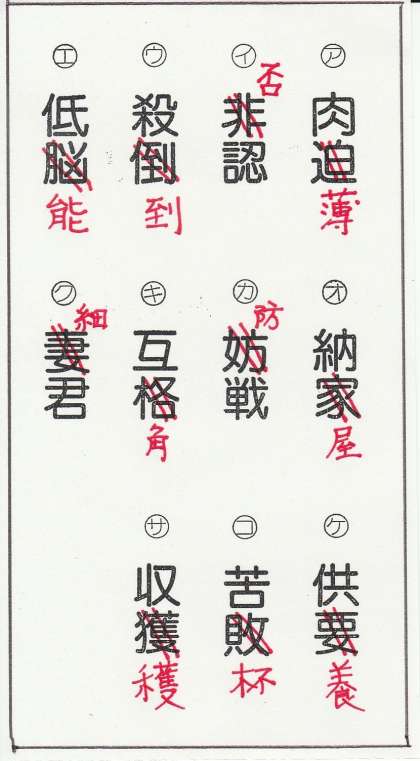 ㋐ 肉迫 薄
㋑ 非認 否
㋒ 殺倒 到
㋓ 低脳 能
㋔ 納家 屋
㋕ 妨戦 防
㋖ 互格 角
㋗ 妻君 細
㋘ 供要 養
㋙ 苦敗 杯
㋚ 収獲 穫